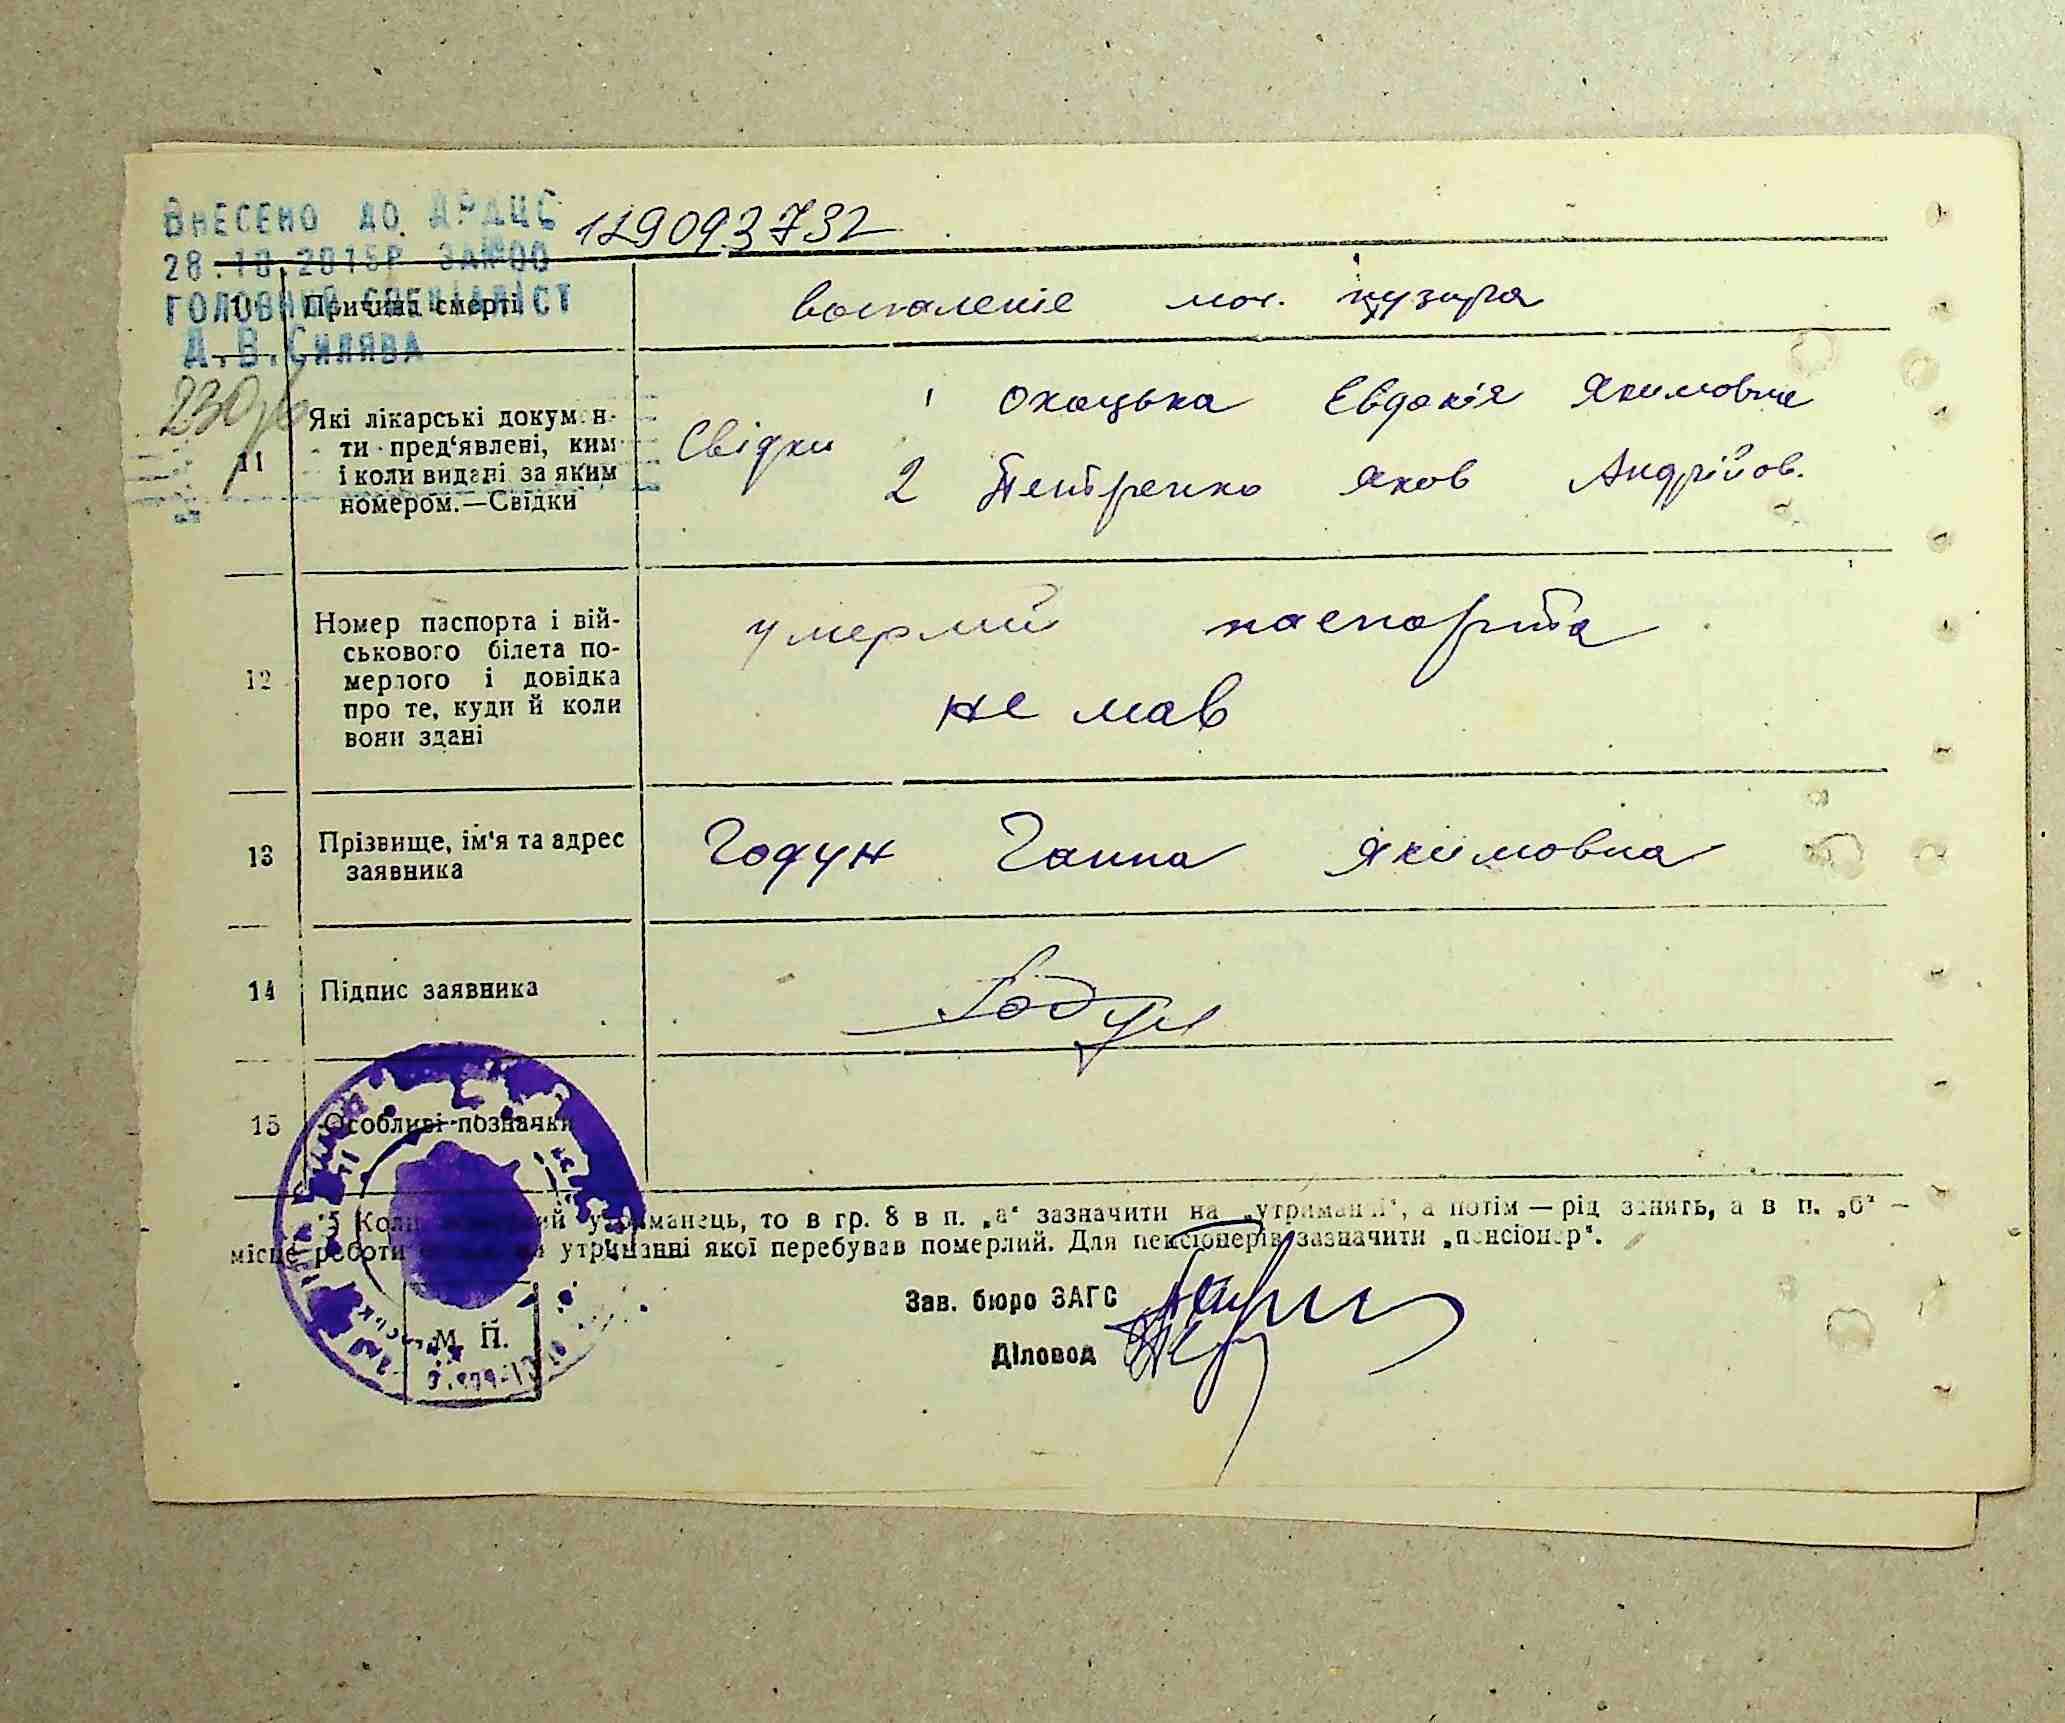 Внесено до ДРАЦС 119093732
28.10.2015р ЗА№00
Головний спеціаліст
А.В.Силява
10 Причина смерті воспаленіе моч. пузиря
11 Які лікарські докумен-
ти пред‘явлені, ким
і коли видані за яким
номером.—Свідки
Свідки
1 Охоцька Евдокія Якимовна
2 Петренко Яков Андрійов.
12 Номер паспорта і вій-
ськового білета по-
мерлого і довідка
про те, куди й коли
вони здані
умерлий паспорта
не мав
13 Прізвище, ім‘я та адрес
заявника
Годун Ганна Якимовна
14 Підпис заявника Годун
15 Особливі позначки
утриманець, то в гр. 8 в п. „а“ зазначити на „утриманні“, а потім — рід занять, а в п. „б“ —
місце роботи утриманні якої перебував померлий. Для пенсіонерів зазначити „пенсіонер“.
Зав. бюро ЗАГС
Діловод
М. П.